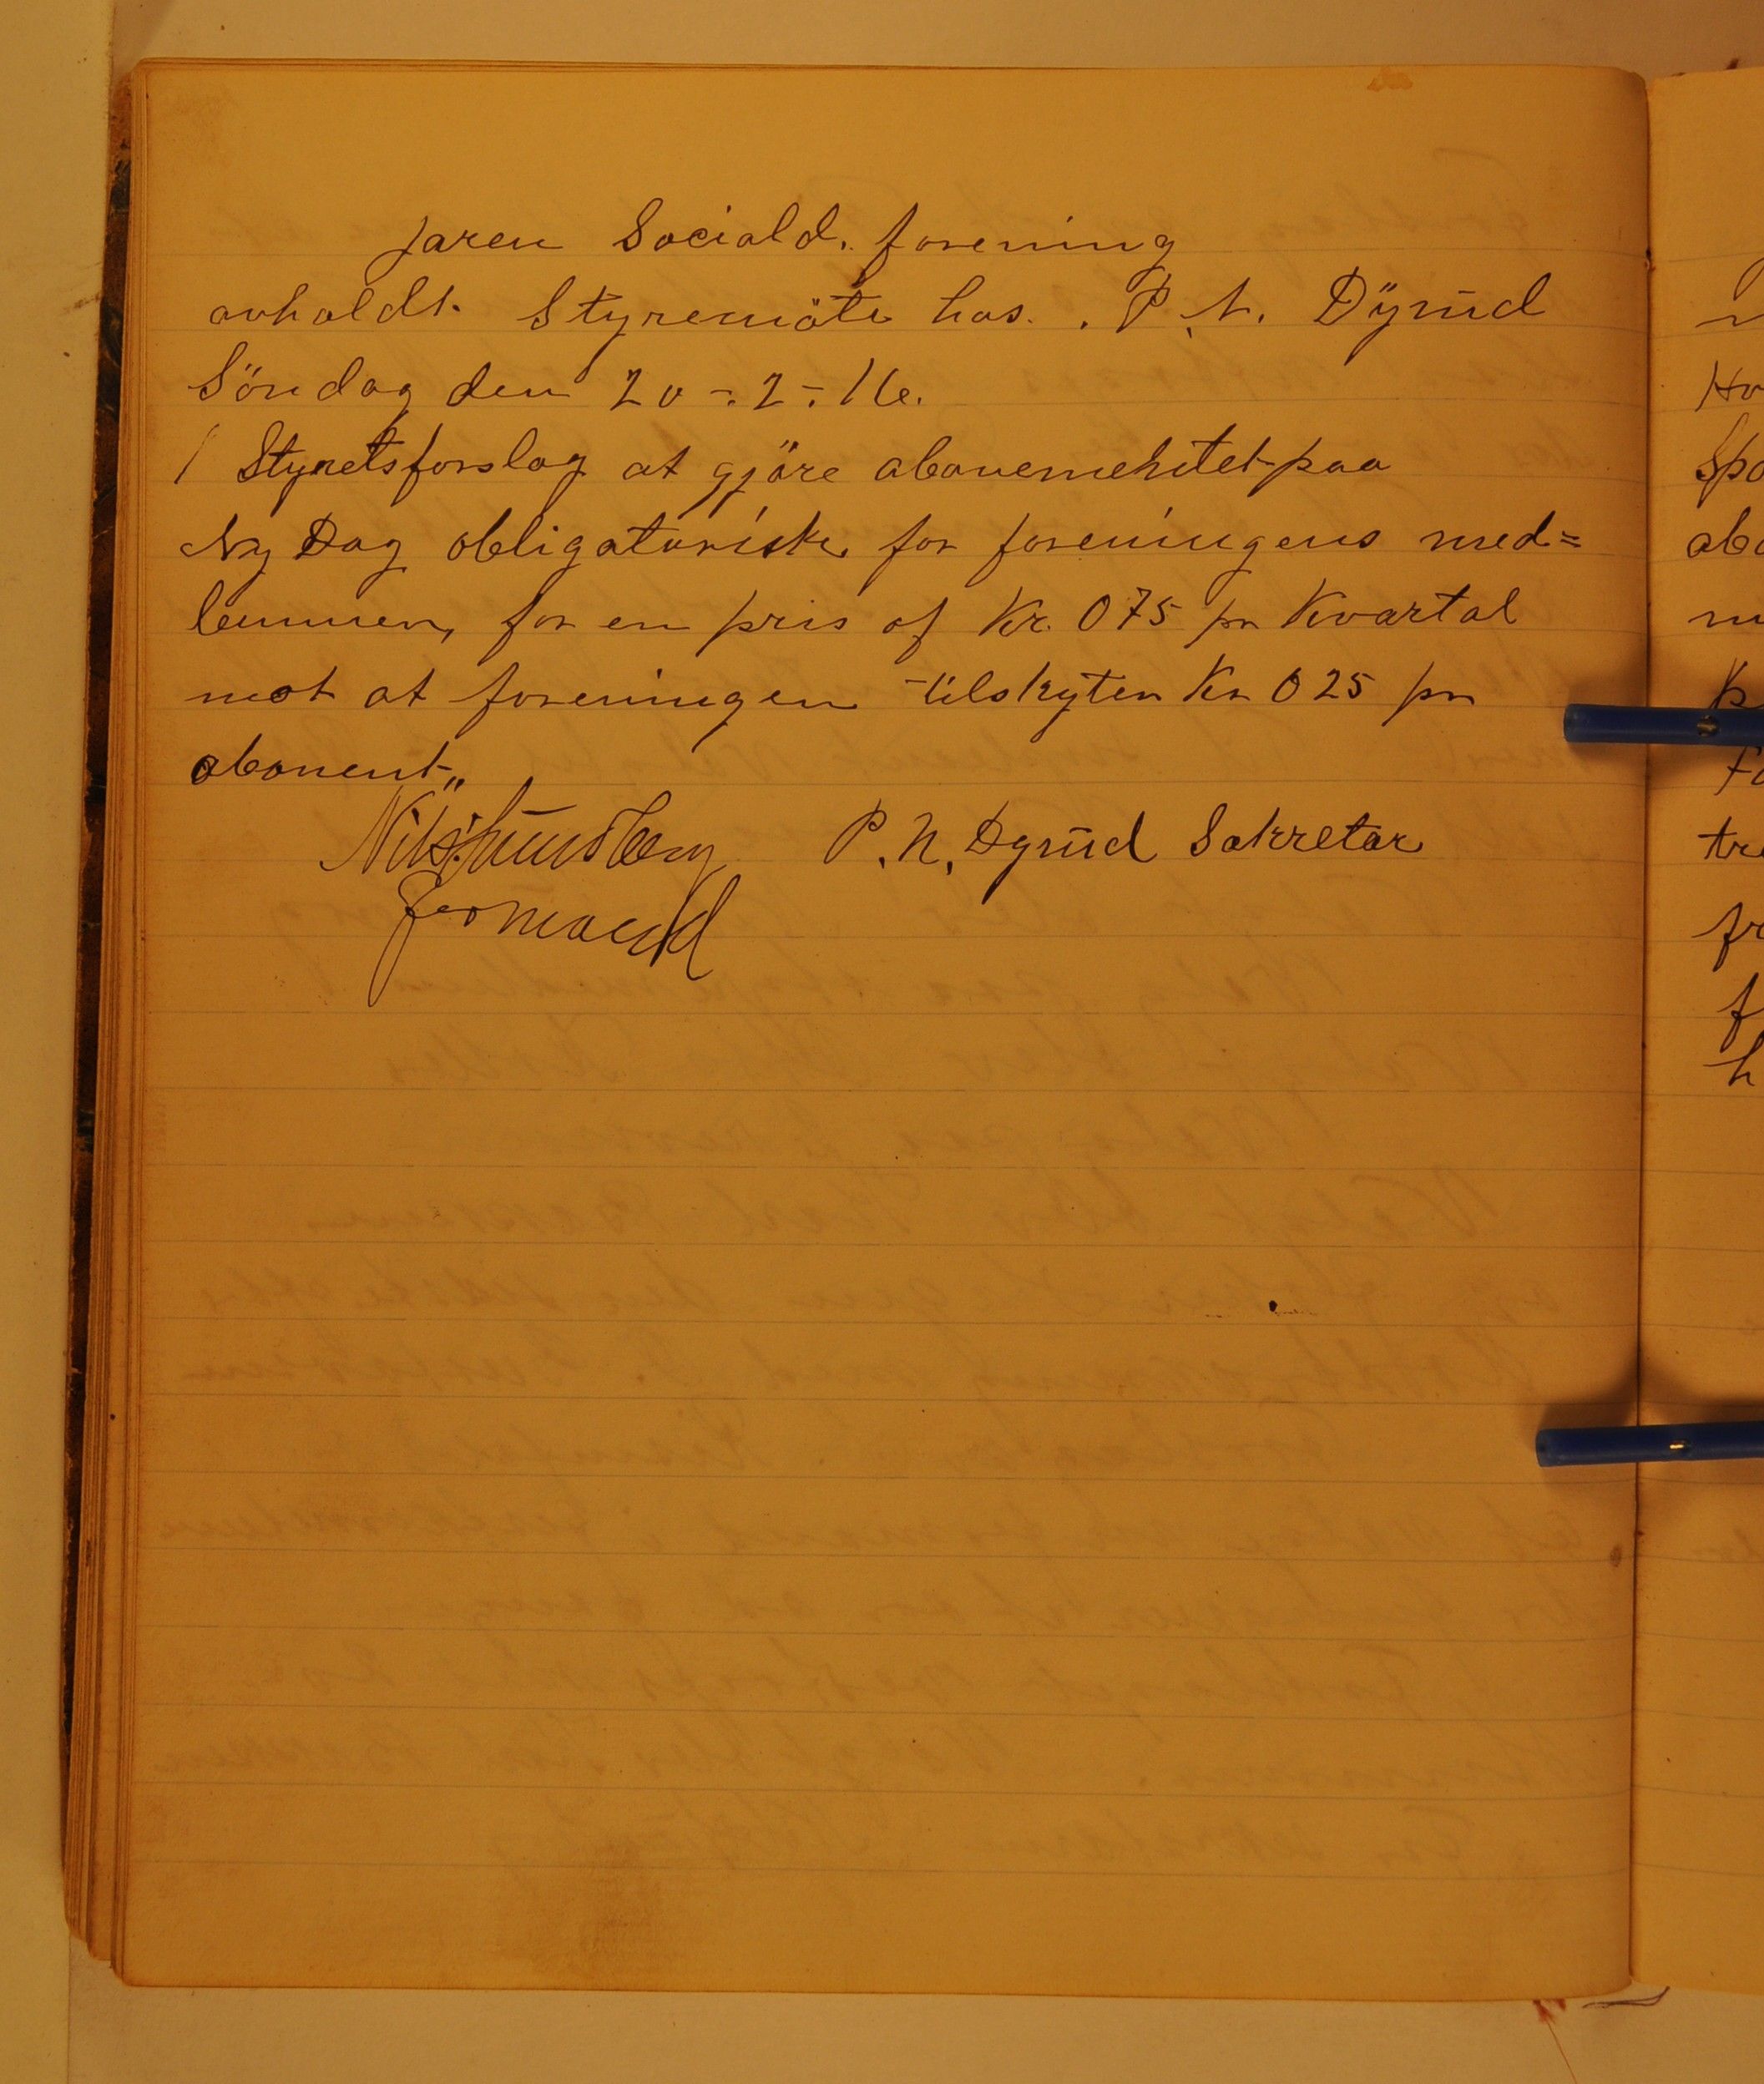 Jaren Sociald. forening
avholdt Styremöte hos. P. N. Dÿrud
Söndag den 20-2-16.
1 Styretsforslag at gjöre abonementet paa
Ny Dag obligatoriske for foreningens med=
lemmer, for en pris af Kr. 075 pr Kvartal
mot at foreningen tilskyter Kr 025 pr
abonent„
Nils P. N. Dyrud Sekretær
Formand
Hv
Spo
abo
tre
fr
f
h